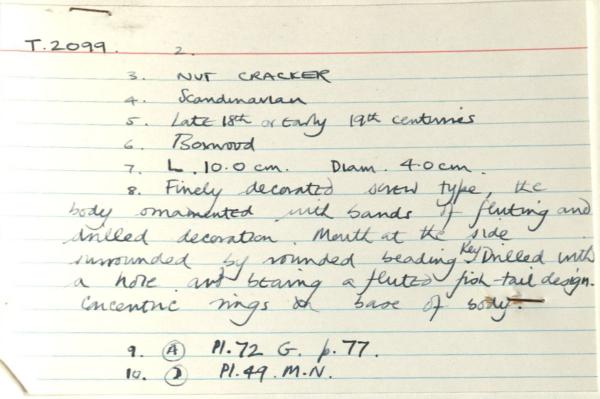 T.2099. 2.
3. NUT CRACKER
4. Scandinavian
5. Late 18th or Early 19th centuries
6. Boxwood
7. L. 10.0 cm. Diam. 4.0 cm.
8. Finely decorated screw type, the
body ornamented with bands of fluting and
drilled decoration. Mouth at the side
surrounded by rounded beading. Key Drilled with
a hole and bearing a fluted fish-tail design.
Concentric rings on base of body.
9. (A) Pl. 72 G. p. 77.
10. (D) Pl. 49. M.N.